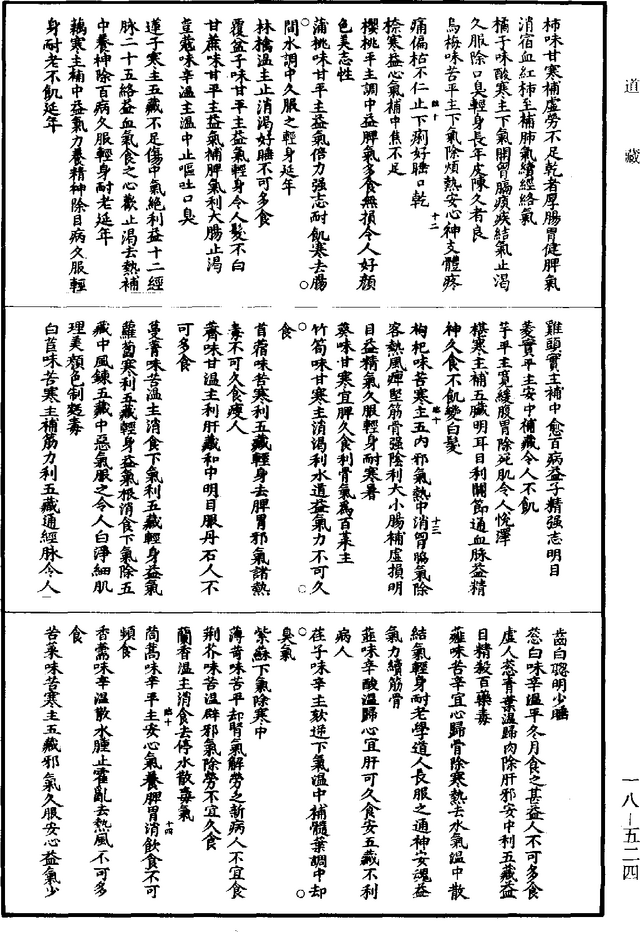 道藏
柿味甘寒補虛勞不足乾者厚腸胃健脾氣
消宿血紅柿至補肺氣續經絡氣
橘子味酸寒主下氣開胃膈痰疾結氣止渴
久服除口臭輕身長年皮陳久者良
烏梅味苦平主下氣除煩熱安心神支體疼
痛偏枯不仁止下痢好睡口乾
臨十 十二
㮈寒益心氣補中焦不足
櫻桃平主調中益脾氣多食無損令人好顏
色美志性
蒲桃味甘平主益氣倍力强志耐飢寒去腸
間水調中久服之輕身延年
林檎溫主止消渴好睡不可多食
覆盆子味甘平主益氣輕身令人髮不白
甘蔗味甘平主益氣補脾氣利大腸止渴
荳蔻味辛溫主溫中止嘔吐口臭
蓮子寒主五藏不足傷中氣絕利益十二經
脉二十五絡益血氣食之心歡止渴去熱補
中養神除百病久服輕身耐老延年
藕寒主補中益氣力養精神除目病久服輕
身耐老不飢延年
雞頭實主補中愈百病益子精强志明目
菱實平主安中補藏令人不飢
芋平主寬緩腹胃除死肌令人悅澤
椹寒主補五臟明耳目利關節通血脉益精
神久食不飢變白髮
臨十 十三
枸杞味苦寒主五內邪氣熱中消胃膈氣除
客熱風痺堅筋骨强陰利大小腸補虛損明
目益精氣久服輕身耐寒暑
葵味甘寒宜脾久食利骨氣爲百菜主
竹筍味甘寒主消渴利水道益氣力不可久
食
苜蓿味苦寒利五藏輕身去脾胃邪氣諸熱
毒不可久食瘦人
薺味甘溫主利肝藏和中明目服丹石人不
可多食
蔓菁味苦溫主消食下氣利五藏輕身益氣
蘿蔔寒利五藏輕身益氣根消食下氣除五
藏中風鍊五藏中惡氣服之令人白淨細肌
理美顏色制麪毒
白苣味苦寒主補筋力利五藏通經脉令人
齒白聰明少睡
葱白味辛溫平冬月食之甚益人不可多食
虛人葱青葉溫歸肉除肝邪安中利五藏益
目精殺百藥毒
薤味苦辛宜心歸骨除寒熱去水氣溫中散
結氣輕身耐老學道人長服之通神安魂益
氣力續筋骨
韮味辛酸溫歸心宜肝可久食安五藏不利
病人
荏子味辛主欬逆下氣溫中補髓葉調中却
臭氣
紫蘇下氣除寒中
薄荷味苦平却腎氣解勞之新病人不宜食
荆芥味苦溫辟邪氣除勞不宜久食
蘭香溫主消食去停水散毒氣
臨十 十四
茼蒿味辛平主安心氣養脾胃消飲食不可
頓食
香薷味辛溫散水腫止霍亂去熱風不可多
食
苦菜味苦寒主五藏邪氣久服安心益氣少
一八—五二四